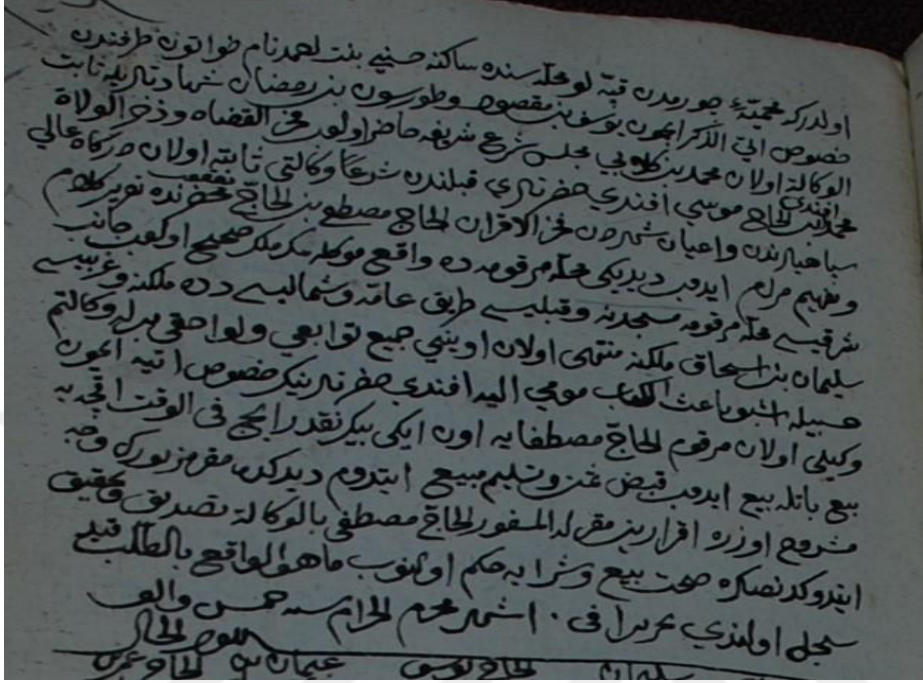 اولدركه محميۀ چورمدن قبه لو محله سنده ساكنه حسنيه بنت احمد نام خواتون طرفندن
خصوص اتي الذكر ايچون يوسف بن مقصود و طورسون بن رمضان شهادتلريله ثابت
الوكالة اولان محمد بن مجلس شرع شريفه حاضر اولوب فخر القضاة وذخر الولاة
محمد افندي بن الحاج موسي افندي حضرتلري قبلندن شرعاً وكالتي ثابته اولان دركاه عالي
سپاهيلرندن واعيان شهردن فخر الاقران الحاج مصطفى بن الحاج محضرنده تقرير كلام
وتفهيم مرام ايدوب ديديكه محله مرقومه ده واقع موكله مك ملك صحيحي اولوب جانب
شرقيسي محله مرقومه مسجدنه وقبليسي طريق عامه وشماليسي دده ملكنه وغربيسي
سليمان بن اسحاق ملكنه منتهى اولان اويني جميع توابعي ولواحقي ايله وكالتم
حسبيله اشبو باعث الكتاب مومي اليه افندي حضرتلرينك خصوص اتيه ايچون
وكيلي اولان مرقوم الحاج مصطفايه اون ايكي بيك نقد رايج في الوقت اقچه يه
بيع باتله بيع ايدوب قبض ثمن وتسليم مبيع ايتدوم ديدكده مقر مزبورك وجه
مشروح اوزره اقرارين مقر له المسفور الحاج مصطفى بالوكالة تصديق وتحقيق
ايتدوكدنصكره صحت بيع وشرايه حكم اولنوب ما هو الواقع بالطلب قيد
سجل اولندي تحريرا في اشهر محرم الحرام سنه خمس والف
شهود الحال
الحاج يوسف عثمان بن الحاج عمر